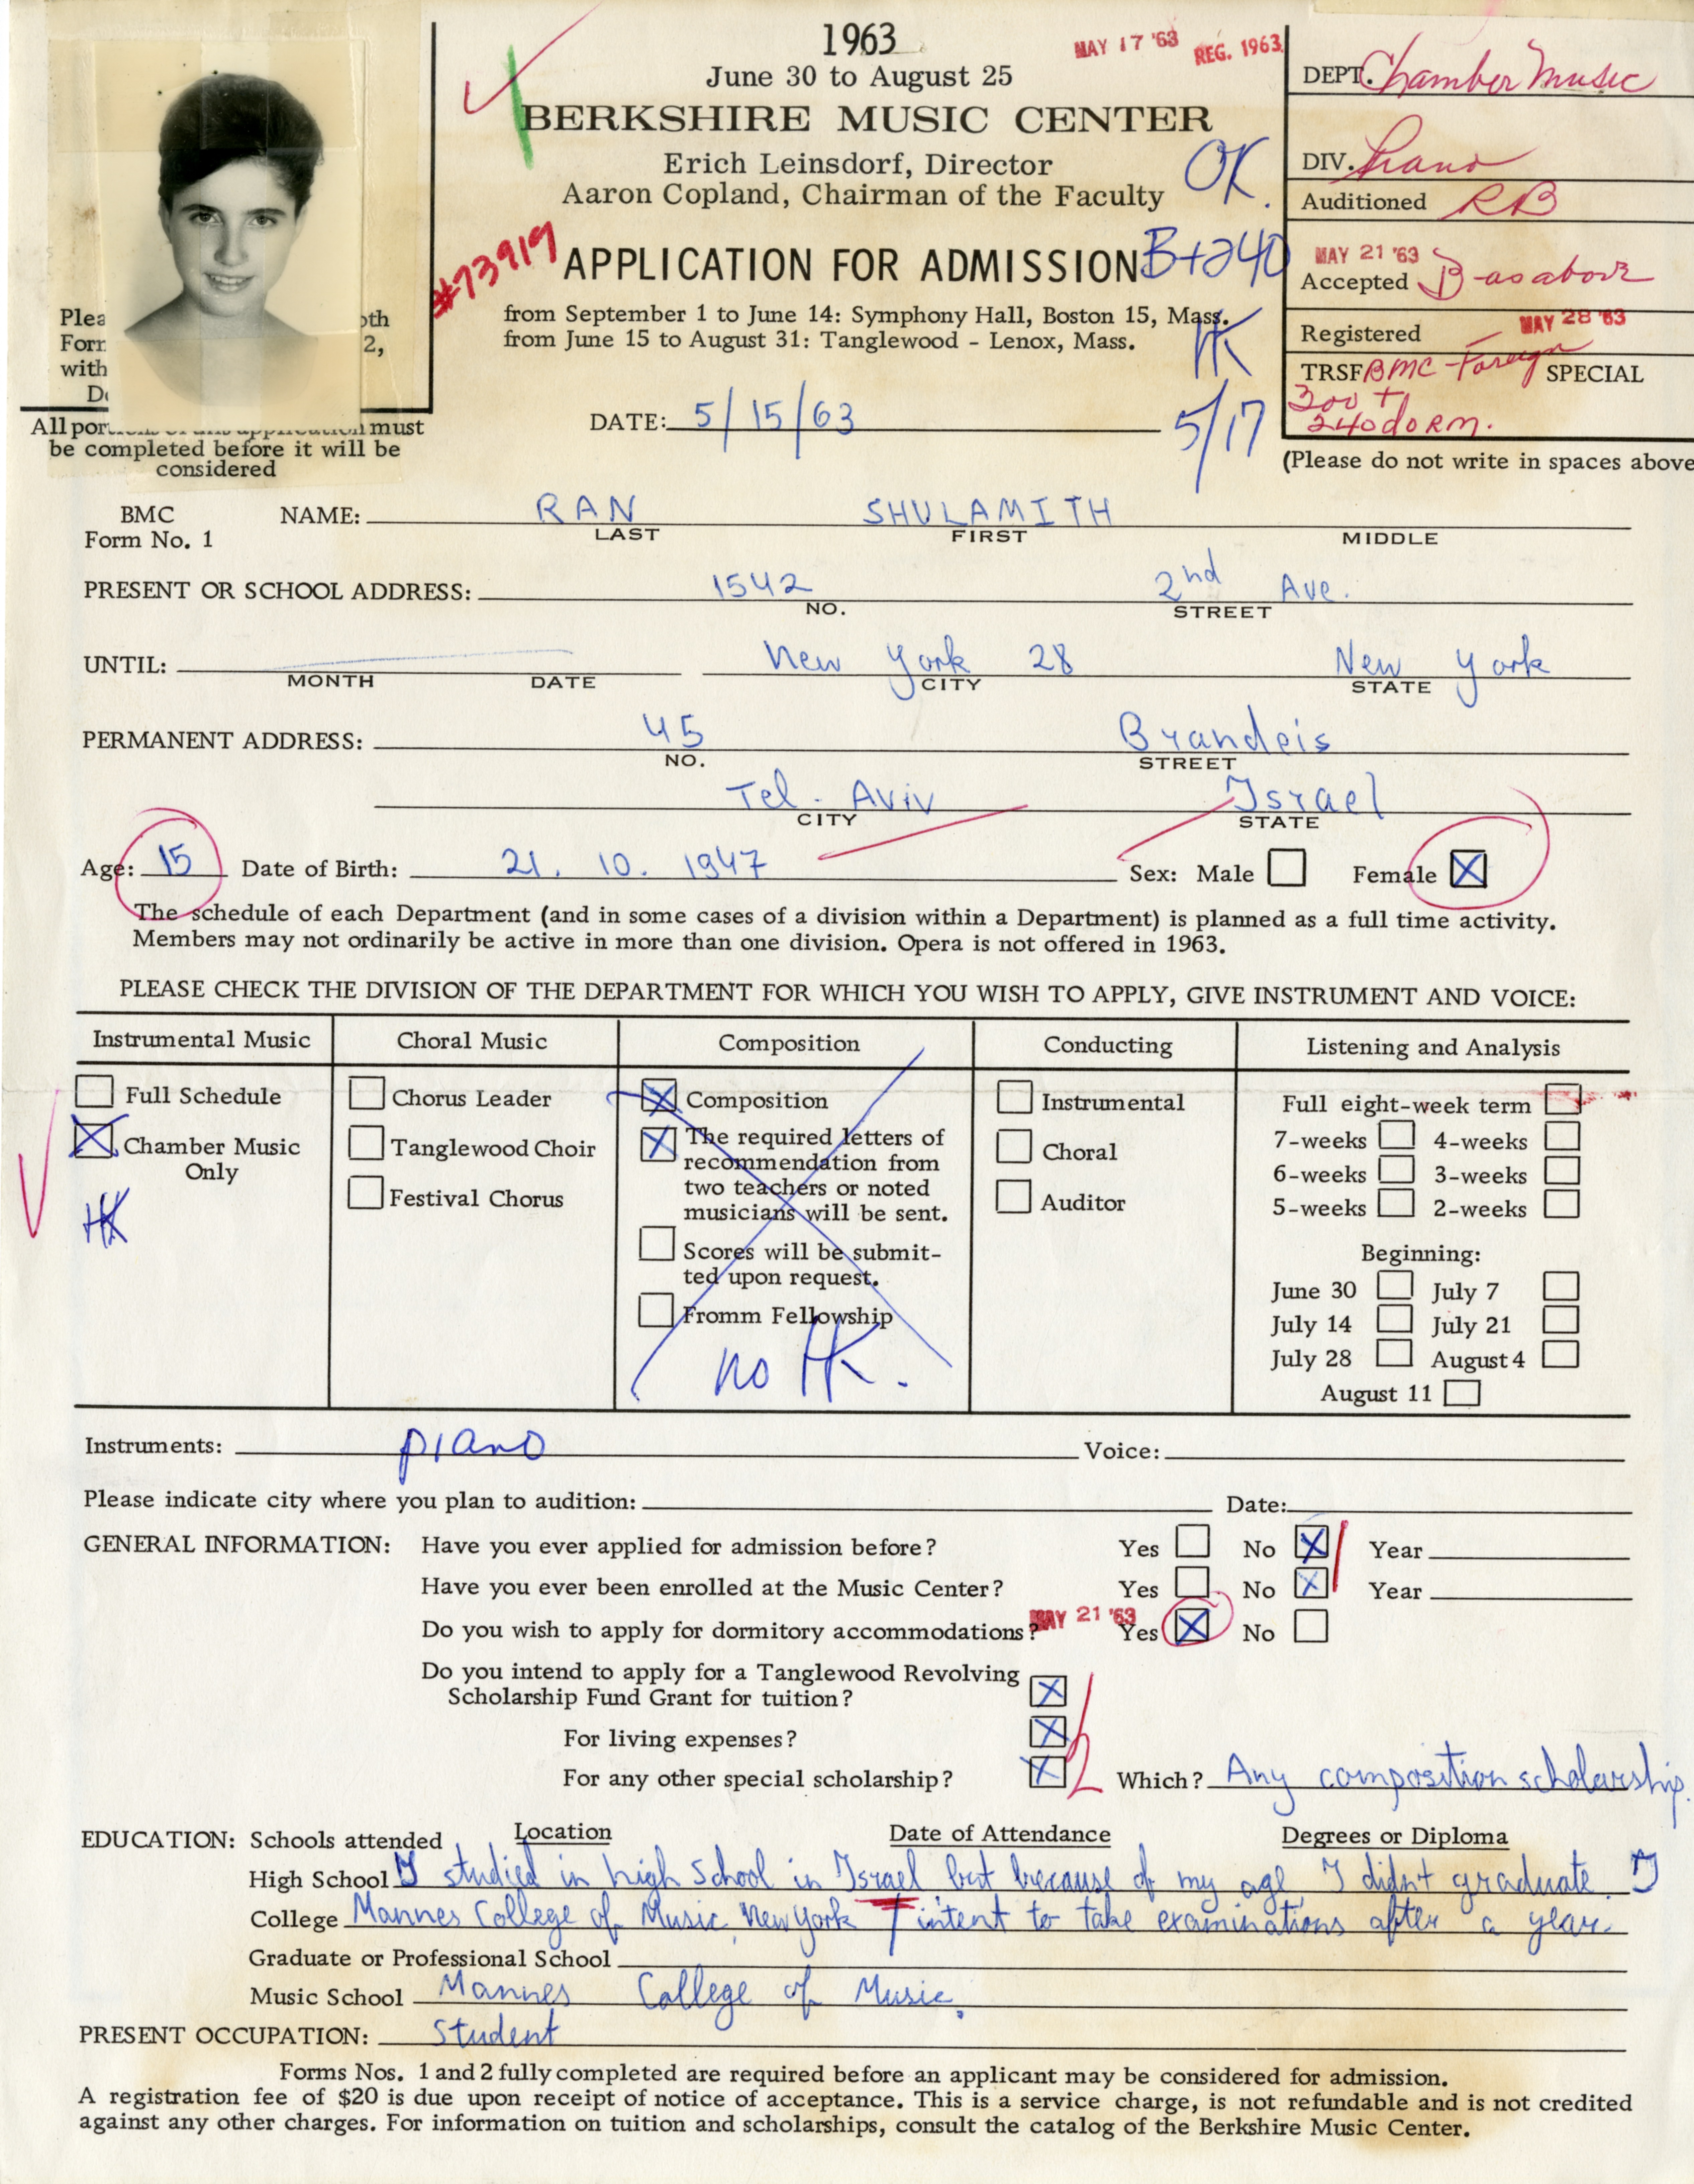 1963
June 30 to August 25
MAY 17 '63
REG. 1963
BERKSHIRE MUSIC CENTER
Erich Leinsdorf, Director
Aaron Copland, Chairman of the Faculty
OK.
#73919
APPLICATION FOR ADMISSION
B+240
from September 1 to June 14: Symphony Hall, Boston 15, Mass.
from June 15 to August 31: Tanglewood - Lenox, Mass.
HK
5/17
DATE: 5/15/63
DEPT. Chamber Music
DIV. Piano
Auditioned RB
MAY 21 '63
Accepted B-as above
Registered MAY 28 '63
TRSF BMC-Foreign SPECIAL
300 +
240 dorm.
(Please do not write in spaces above
Plea oth
Forr 2,
with
All por must
be completed before it will be
considered
BMC
Form No. 1
NAME: RAN SHULAMITH
LAST FIRST MIDDLE
PRESENT OR SCHOOL ADDRESS: 1542 2nd Ave.
NO. STREET
UNTIL: New York 28 New York
MONTH DATE CITY STATE
PERMANENT ADDRESS: 45 Brandeis
NO. STREET
Tel-Aviv Israel
CITY STATE
Age: 15 Date of Birth: 21. 10. 1947 Sex: Male Female X
The schedule of each Department (and in some cases of a division within a Department) is planned as a full time activity.
Members may not ordinarily be active in more than one division. Opera is not offered in 1963.
PLEASE CHECK THE DIVISION OF THE DEPARTMENT FOR WHICH YOU WISH TO APPLY, GIVE INSTRUMENT AND VOICE:
Instrumental Music
Full Schedule
X Chamber Music
Only
HK
Choral Music
Chorus Leader
Tanglewood Choir
Festival Chorus
Composition
X Composition
X The required letters of
recommendation from
two teachers or noted
musicians will be sent.
Scores will be submit-
ted upon request.
Fromm Fellowship
no HK.
Conducting
Instrumental
Choral
Auditor
Listening and Analysis
Full eight-week term
7-weeks 4-weeks
6-weeks 3-weeks
5-weeks 2-weeks
Beginning:
June 30 July 7
July 14 July 21
July 28 August 4
August 11
Instruments: piano Voice:
Please indicate city where you plan to audition: Date:
GENERAL INFORMATION: Have you ever applied for admission before? Yes No X Year
Have you ever been enrolled at the Music Center? Yes No X Year
Do you wish to apply for dormitory accommodations? MAY 21 '63 Yes X No
Do you intend to apply for a Tanglewood Revolving
Scholarship Fund Grant for tuition? X
For living expenses? X
For any other special scholarship? X Which? Any composition scholarship.
EDUCATION: Schools attended Location Date of Attendance Degrees or Diploma
High School I studied in high school in Israel but because of my age I didn't graduate. I
College Mannes College of Music, New York intent to take examinations after a year.
Graduate or Professional School
Music School Mannes College of Music.
PRESENT OCCUPATION: Student
Forms Nos. 1 and 2 fully completed are required before an applicant may be considered for admission.
A registration fee of $20 is due upon receipt of notice of acceptance. This is a service charge, is not refundable and is not credited
against any other charges. For information on tuition and scholarships, consult the catalog of the Berkshire Music Center.